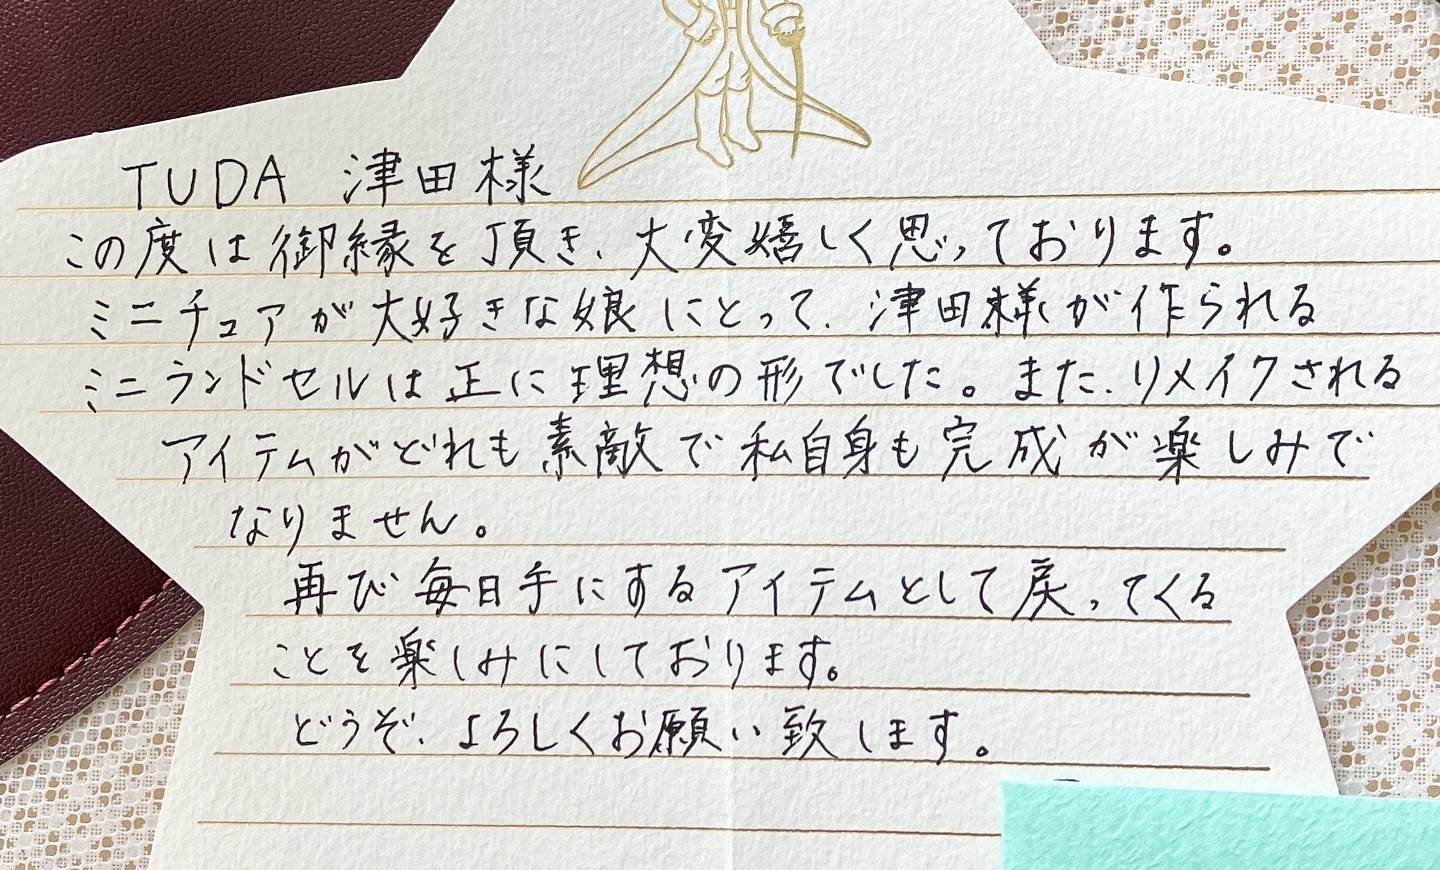 TUDA 津田様
この度は御縁を頂き、大変嬉しく思っております。
ミニチュアが大好きな娘にとって、津田様が作られる
ミニランドセルは正に理想の形でした。また、リメイクされる
アイテムがどれも素敵で私自身も完成が楽しみで
なりません。
再び毎日手にするアイテムとして戻ってくる
ことを楽しみにしております。
どうぞ、よろしくお願い致します。